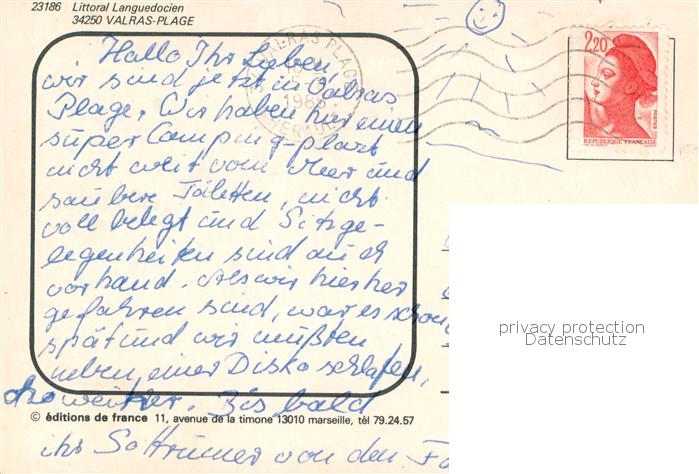 23186 Littoral Languedocien
34250 VALRAS-PLAGE
VALRAS PLAGE
2,20
POSTES
REPUBLIQUE FRANÇAISE
Hallo Ihr Lieben
wir sind jetzt in Valras
Plage. Wir haben hier einen
super Camping-platz
nicht weit vom Meer und
saubere Toiletten, nicht
voll belegt und Sitzge-
legenheiten sind auch
vorhand. Als wir hierher
gefahren sind, war es schon
spät und wir mußten
neben einer Disko schlafen,
weiter. Bis bald
© éditions de france 11, avenue de la timone 13010 marseille, tél 79.24.57
ihr von den
privacy protection
Datenschutz